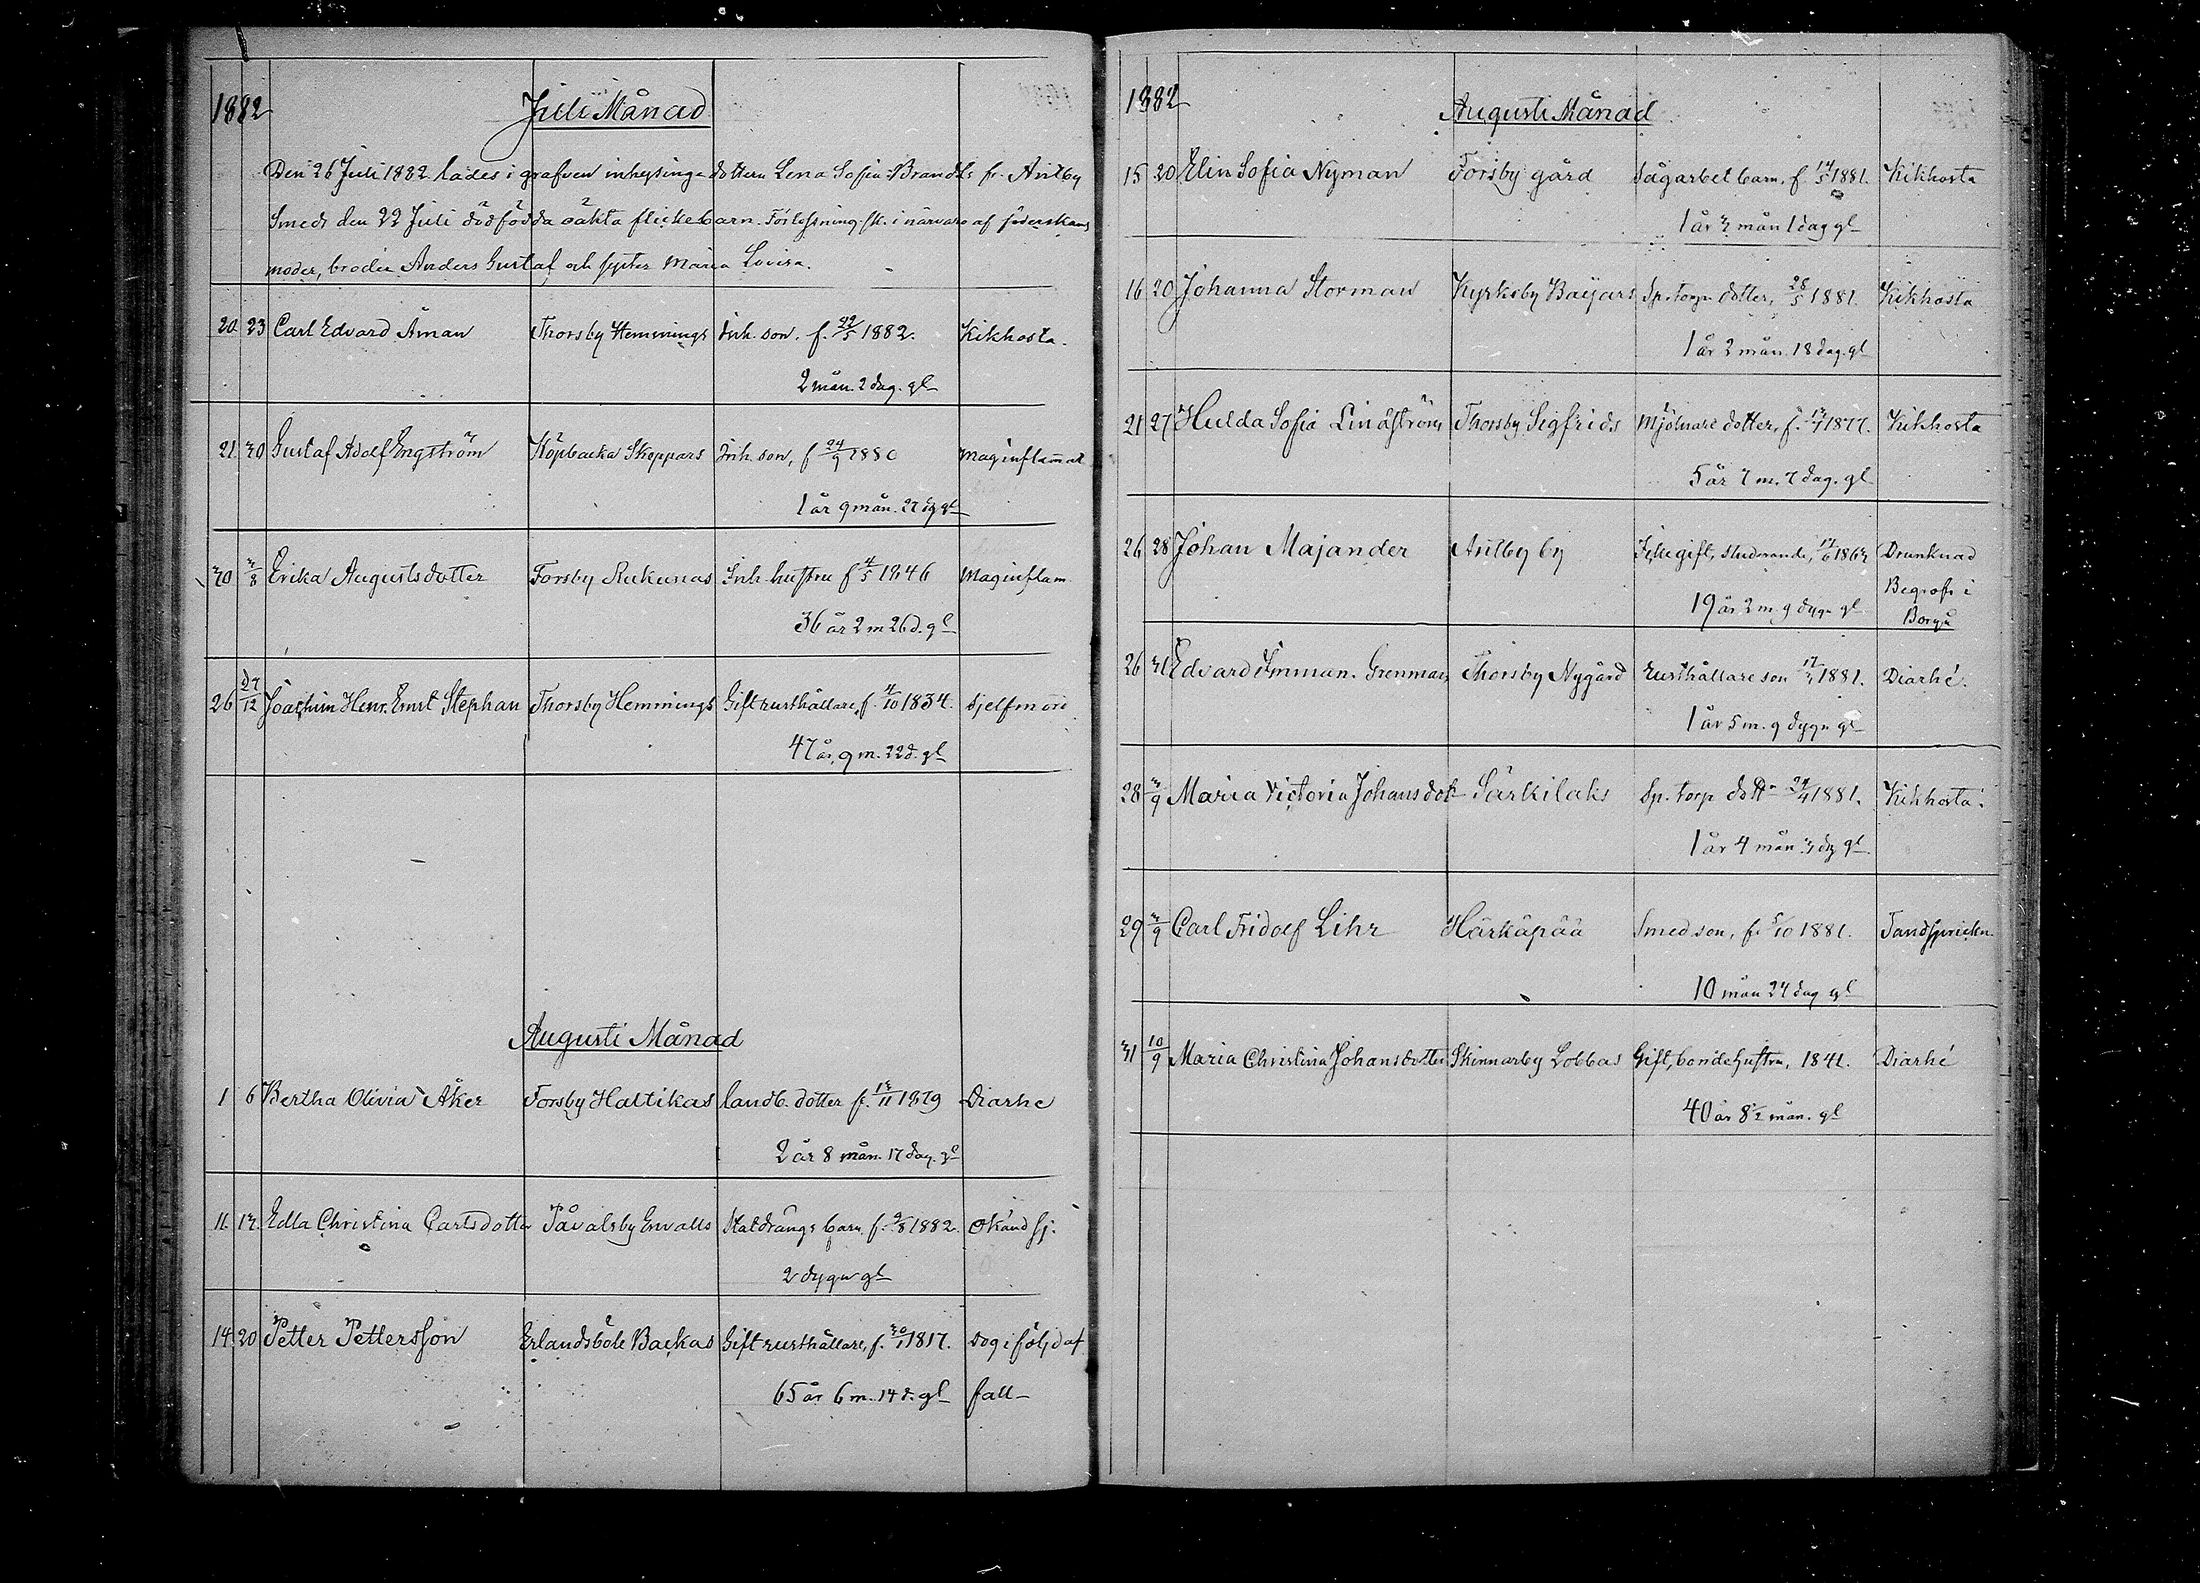 1882 Juli Månad
Den 26 Juli 1882 lades i grafven inhysinge dottern Lena Sofia Brandts fr. Antby
Smeds den 22 Juli dödfödda oäkta flickebarn. Förlossning sk. i närvaro af föderskans
moder, broder Anders Gustaf och syster Maria Lovisa.
20 23 Carl Edvard Åman Thorsby Hemmings Inh. son. f. 22/5 1882. Kikhosta.
2 mån. 2 dag. gl
21 30 Gustaf Adolf Engström Köpbacka Skeppars Inh. son, f 24/9 1880 Maginflamat
1 år 9 mån. 27 dg gl
30 3/8 Erika Augustsdotter Forsby Rukunas Inh. hustru f 4/5 1846 Maginflam
36 år 2 m 26 d. gl
26 27/12 Joachim Henr. Ernst Stephan Thorsby Hemmings Gift rusthållare, f. 4/10 1834. Sjelfmord
47 år, 9 m. 22 d. gl
Augusti Månad
1 6 Bertha Olivia Åker Forsby Haltikas landb. dotter f. 13/11 1879 Diarhe
2 år 8 mån. 17 dag. gl
11. 13. Edla Christina Carlsdotter Påvalsby Envalls Statdrängs barn, f. 9/8 1882. Okänd sj.
2 dygn gl
14. 20 Petter Pettersson Erlandsböle Backas Gift rusthållare, f. 30/1 1817. Dog i följd af
65 år 6 m. 14 d. gl fall
1882 Augusti Månad
15 20 Elin Sofia Nyman Forsby gård Sågarbet barn, f 14/5 1881. Kikhosta
1 år 3 mån 1 dag gl
16 20 Johanna Storman Kyrkoby Baijars Sp. torp. dotter, 28/5 1881. Kikhosta
1 år 2 mån. 18 dag. gl
21 27 Hulda Sofia Lindström Thorsby Sigfrids Mjölnare dotter, f. 1877. Kikhosta
5 år 7 m. 7 dag. gl
26 28 Johan Majander Antby by Icke gift, studerande, 17/6 1863 Drunknad
Begrofs i
19 år 2 m. 9 dygn gl Borgå
26 31 Edvard Emman. Grenman Thorsby Nygård Rusthållare son 17/3 1881. Diarhé.
1 år 5 m. 9 dygn gl
28 3/9 Maria Victoria Johansdot Särkilaks Sp. torp dottr 24/4 1881. Kikhosta.
1 år 4 mån 3 dg gl
29 3/9 Carl Fridolf Lihr Härkäpää Smed son, f. 5/10 1881. Tandsprickn
10 mån 24 dag gl
31 10/9 Maria Christina Johansdotter Skinnarby Lobbas Gift, bondehustru, 1841. Diarhé
40 år 8½ mån. gl